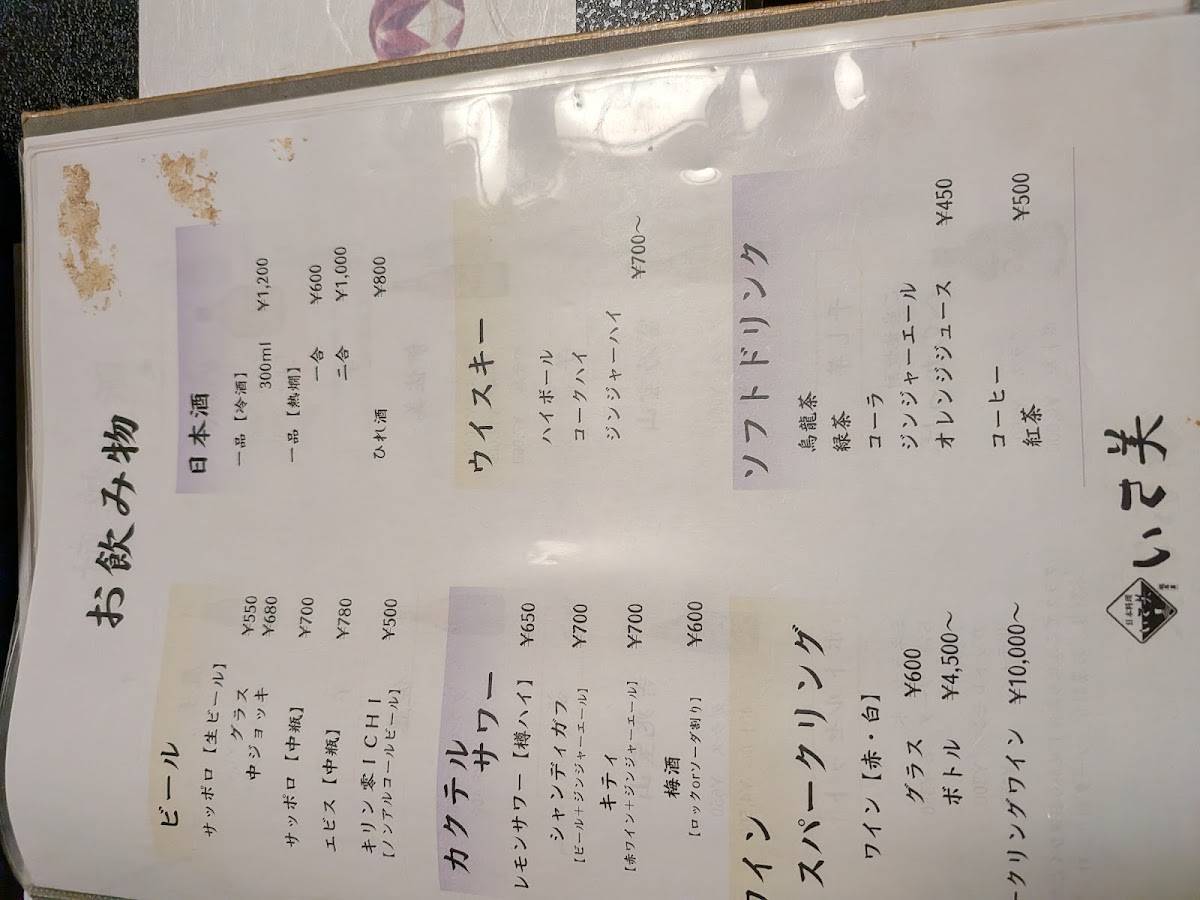 お飲み物
ビール
サッポロ【生ビール】
グラス ¥550
中ジョッキ ¥680
サッポロ【中瓶】 ¥700
エビス【中瓶】 ¥780
キリン零ICHI ¥500
【ノンアルコールビール】
日本酒
一品【冷酒】
300ml ¥1,200
一品【熱燗】
一合 ¥600
二合 ¥1,000
ひれ酒 ¥800
カクテル
サワー
レモンサワー【樽ハイ】 ¥650
シャンディガフ ¥700
【ビール+ジンジャーエール】
キティ ¥700
【赤ワイン+ジンジャーエール】
梅酒 ¥600
【ロックorソーダ割り】
ウイスキー
ハイボール
コークハイ
ジンジャーハイ ¥700〜
ワイン
スパークリング
ワイン【赤・白】
グラス ¥600
ボトル ¥4,500〜
ークリングワイン ¥10,000〜
ソフトドリンク
烏龍茶
緑茶
コーラ
ジンジャーエール
オレンジジュース ¥450
コーヒー
紅茶 ¥500
日本料理
いさ美